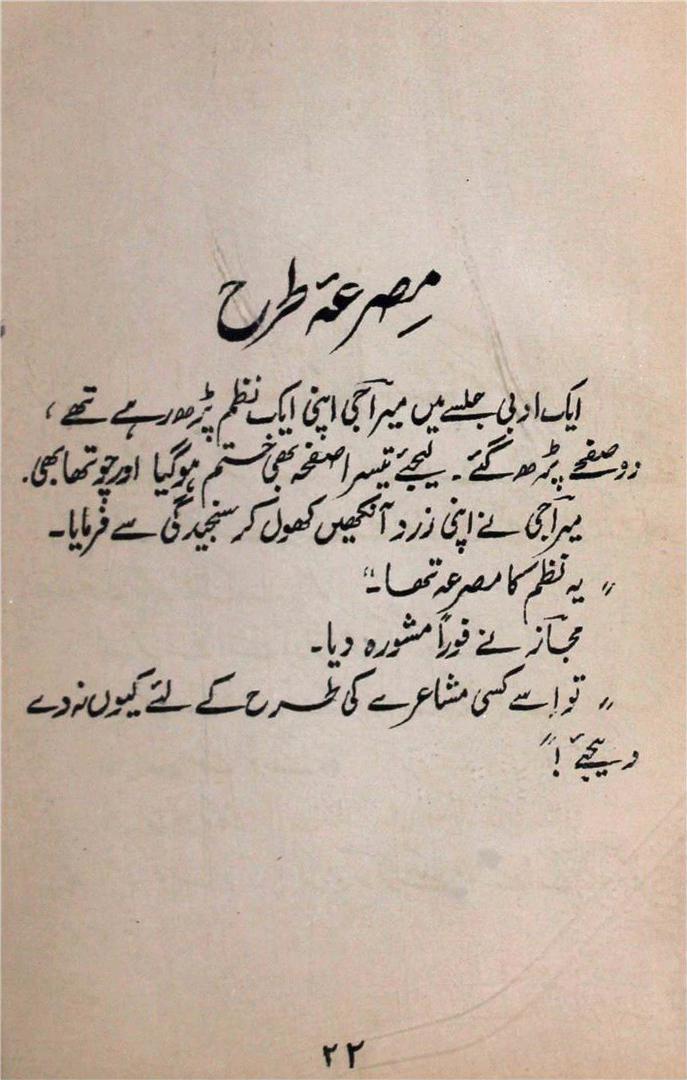 مِصرعۂ طرح
ایک ادبی جلسے میں میراجی اپنی ایک نظم پڑھ رہے تھے،
دو صفحے پڑھ گئے۔ لیجئے تیسرا صفحہ بھی ختم ہوگیا اور چوتھا بھی.
میراجی نے اپنی زرد آنکھیں کھول کر سنجیدگی سے فرمایا۔
"یہ نظم کا مصرعہ تھا۔"
مجاز نے فوراً مشورہ دیا۔
"تو اِسے کسی مشاعرے کی طرح کے لئے کیوں نہ دے
دیجئے!"
۲۲